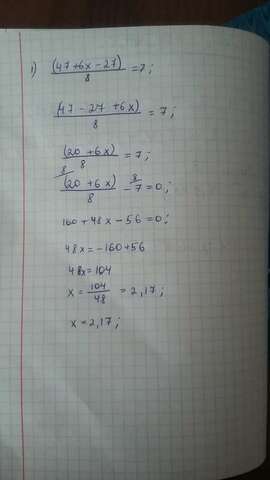 1) (47+6x-27)/8 = 7;
(47-27+6x)/8 = 7;
(20+6x)/8 = 7;
8/ (20+6x)/8 - 8/ 7 = 0;
160+48x-56=0;
48x=-160+56
48x=104
x = 104/48 = 2,17;
x=2,17;